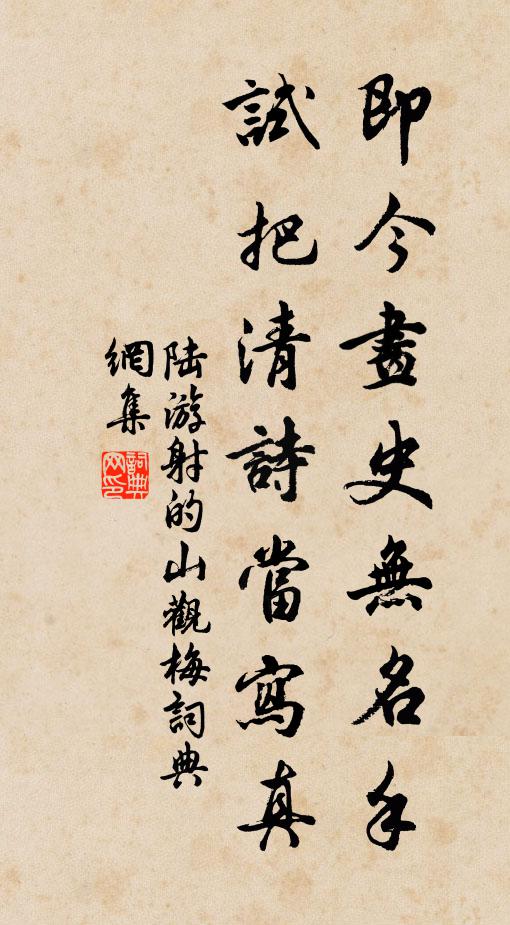 即今畫史無名手
試把清詩當寫真
陆游射的山觀梅詞典
網集
詞典
网印